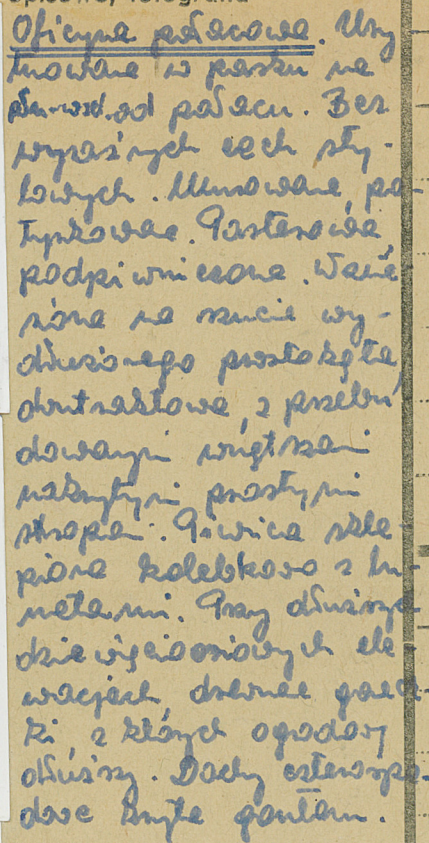 Oficyna pałacowa. Usy
tuowana w parku na
płn-wsch. od pałacu. Bez
wyraźnych cech sty-
lowych. Murowana, po-
tynkowana. Parterowa,
podpiwniczona. Wznie-
siona na rzucie wy-
dłużonego prostokąta,
dwutraktowa, z przebu
dowanymi wnętrzami
nakrytymi prostymi
stropami. Piwnica skle-
piona kolebkowo z lu-
netami. Przy dłuższych
dziewięcioosiowych ele-
wacjach drewniane gan-
ki, z których ogrodowy
dłuższy. Dachy czterospa-
dowe kryte gontem.